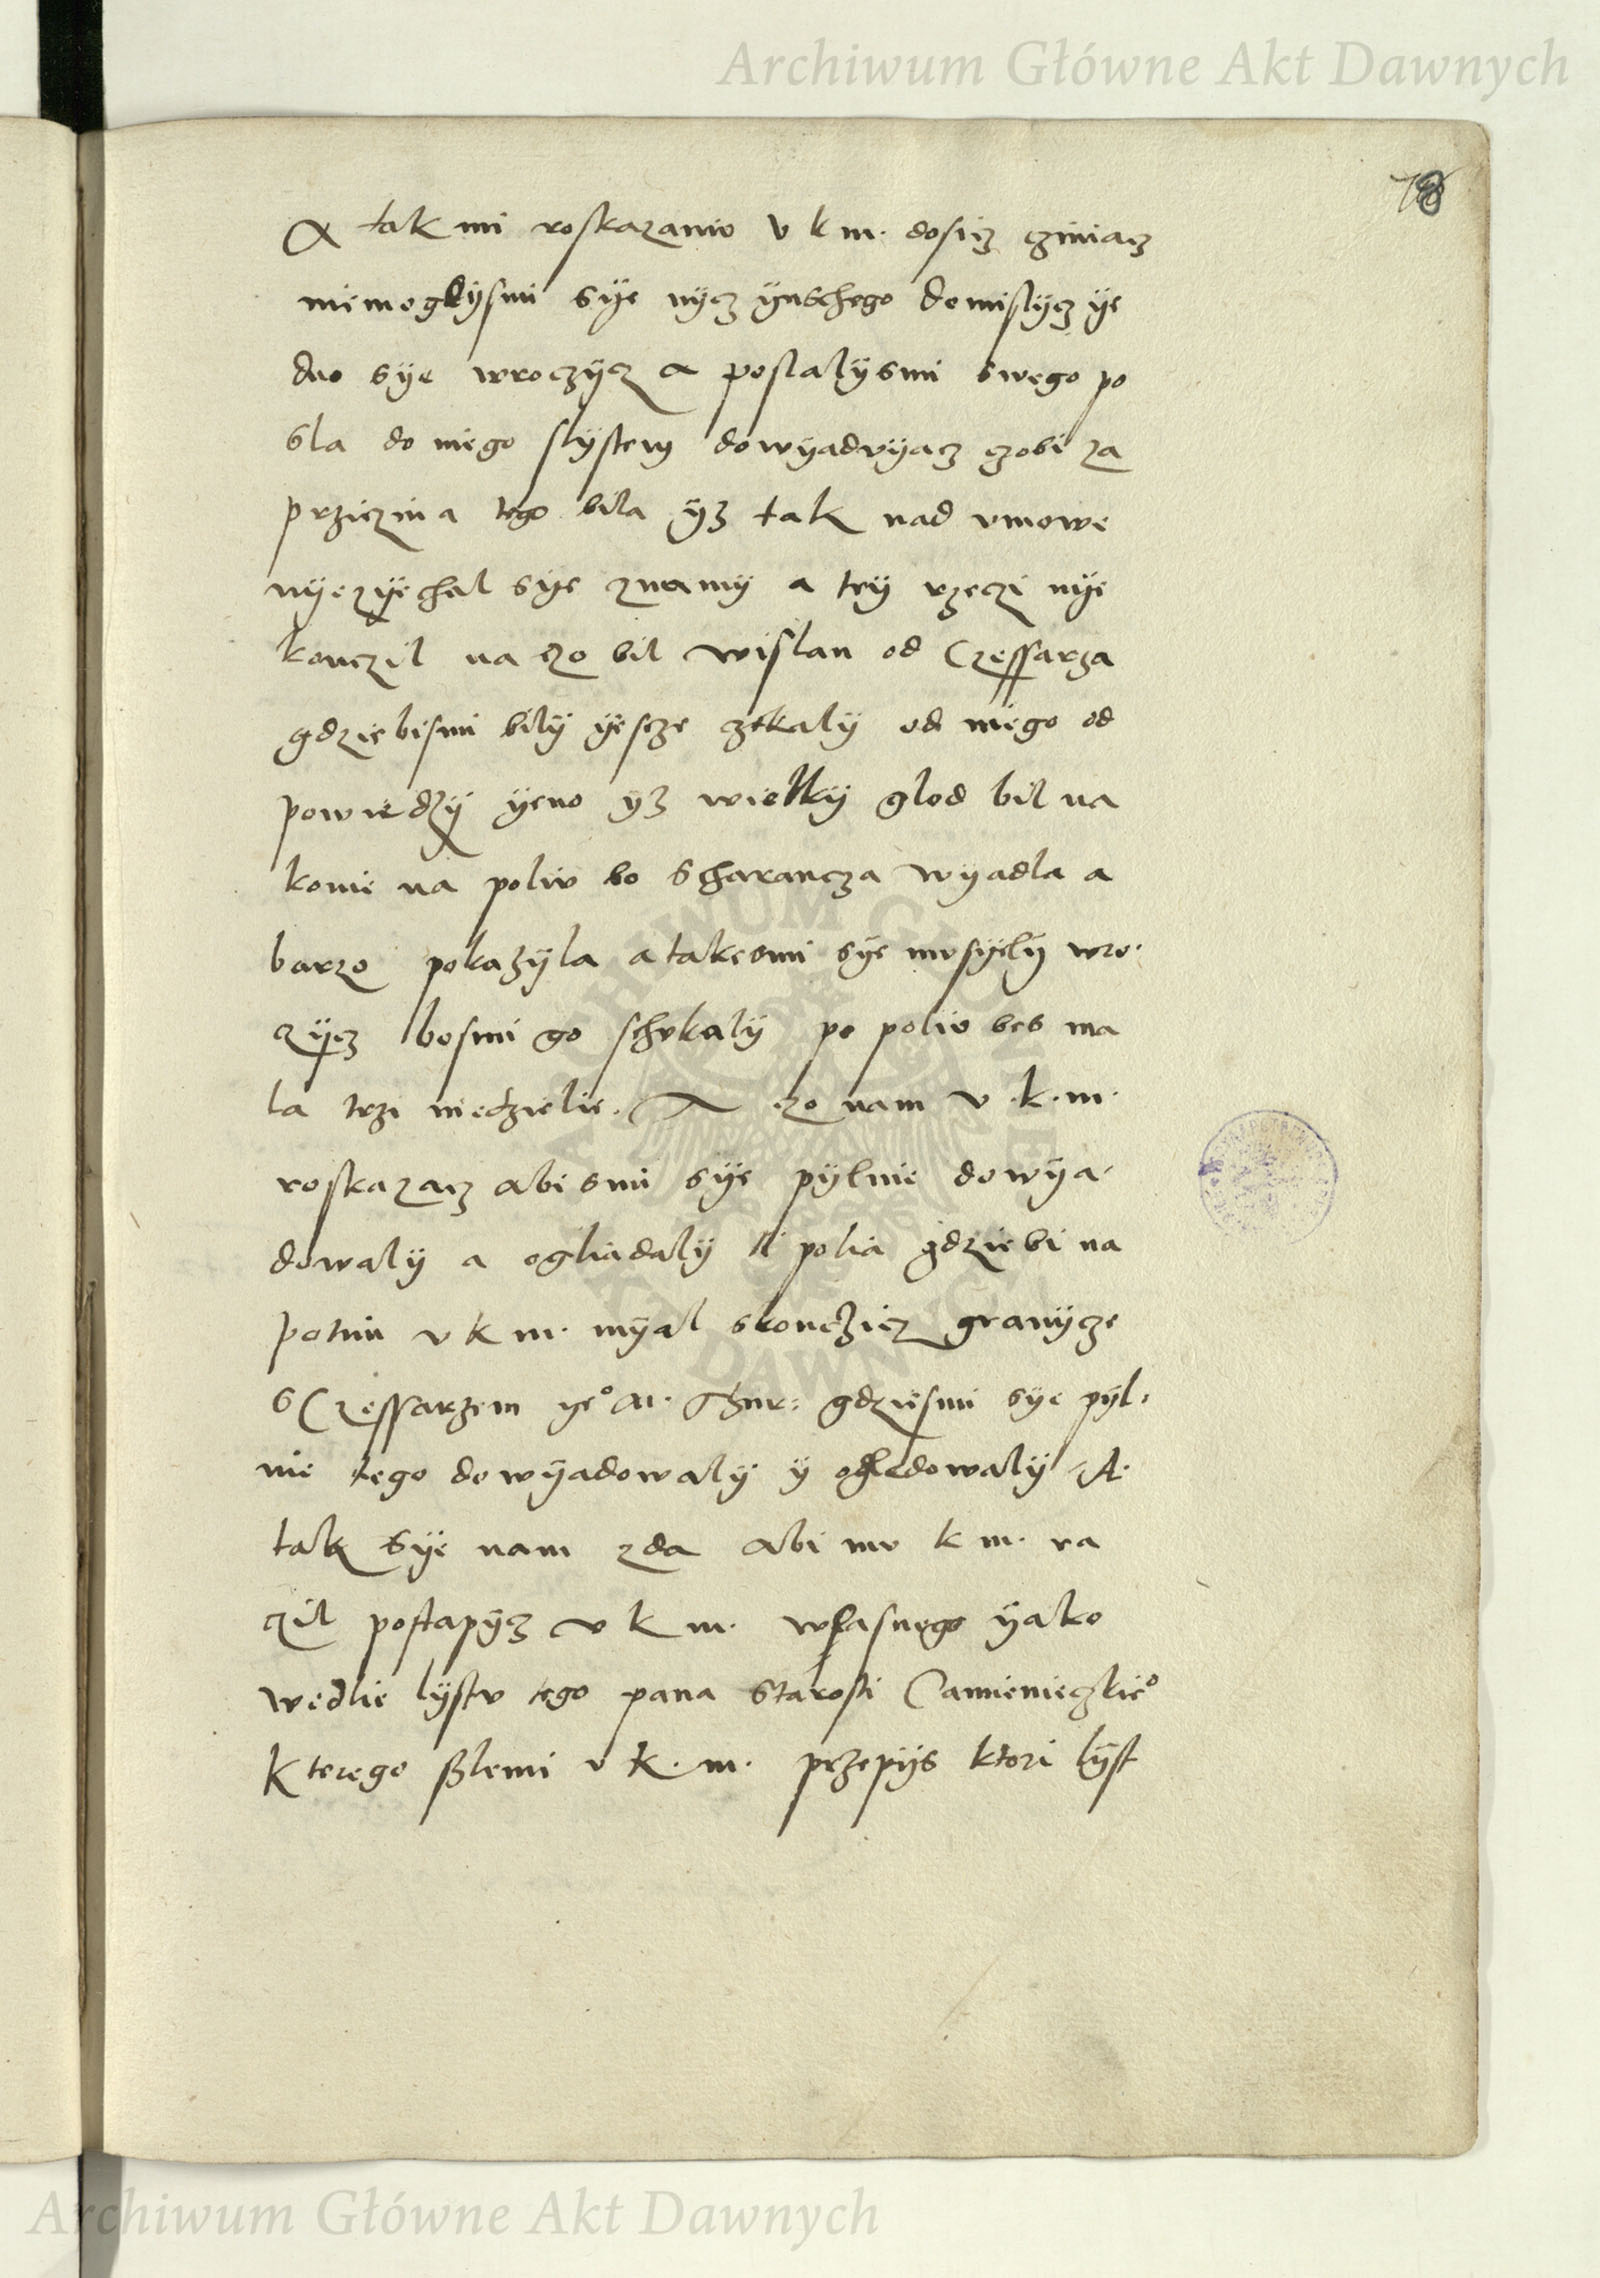 Archiwum Główne Akt Dawnych
8
A tak mi roskazaniv v k m. dosicz cziniacz
niemoglysmi sÿe nÿcz ÿnschego domislÿcz ÿe
dno sÿe wroczÿcz a poslalÿsmi swego po
sla do niego slÿstem dowÿadvÿacz czobi za
przizina tego bila ÿz tak nad vmowe
nÿezÿechal sÿe znamÿ a teÿ rzeczi nÿe
konczil na czo bil wislan od Czessarza
gdziebismi bilÿ ÿescze czekalÿ od niego od
powiedzÿ ÿeno ÿz wielkÿ glod bil na
konie na poliv bo scharancza wÿadla a
barzo pokazÿla a takesmi sÿe mvsÿelÿ wro.
czÿcz bosmi go schvkalÿ po poliv bes ma
la trzi niedzielie. A czo nam v. k. m.
roskazacz abismi sÿe pÿlnie dowÿa.
dowalÿ a ogliadalÿ polia gdziebi na
potim v k m. mÿal skonczicz granÿcze
s Czessarzem ÿe° m. Thur: gdziesmi sÿe pÿl.
nie tego dowÿadowalÿ ÿ ogledowalÿ A.
tak sÿe nam zda abi mv k m. ra
czil postapÿcz v k m. wlasnego ÿako
wedlie lÿstv tego pana starosti Camienieczkie°
kterego slemi v k. m. przepÿs ktori lÿst
Archiwum Główne Akt Dawnych